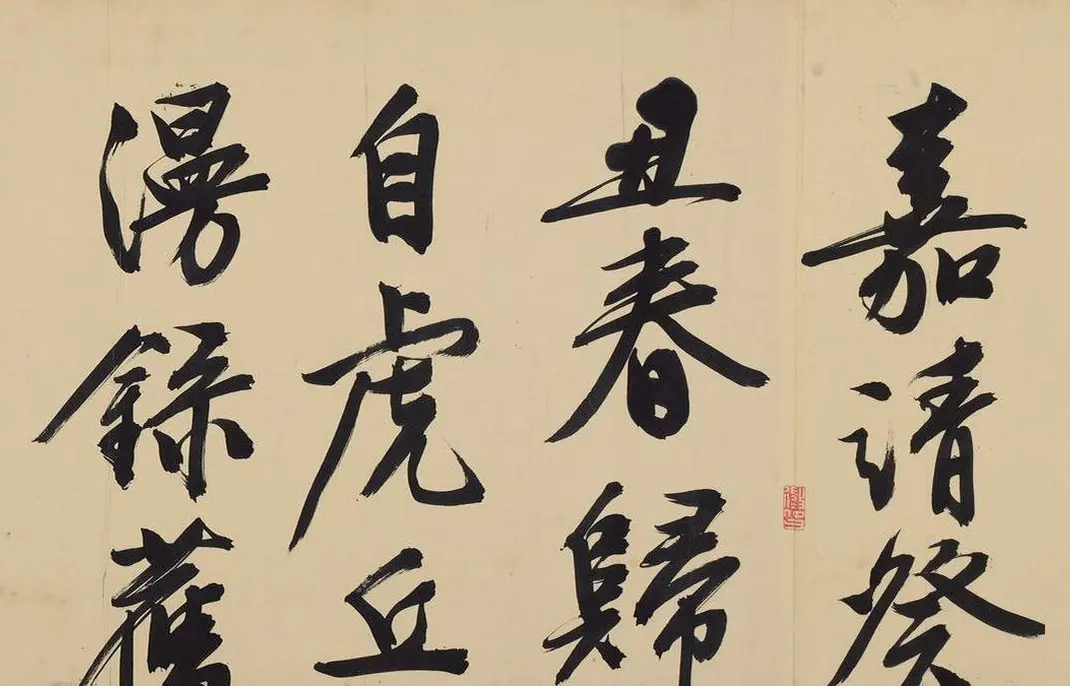 嘉靖癸
丑春歸
自虎丘
漫錄舊